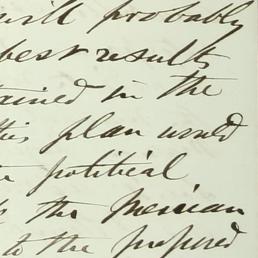 will probably
best results
tained in the
this plan would
political
the Mexican
to the proposed